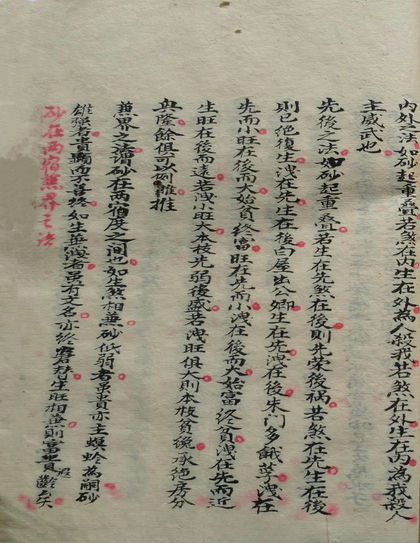 内外之法如砂起重叠若煞在内生在外為人殺我若煞在外生在内為我殺人
主威武也
先後之法如砂起重叠若生在先煞在後則先榮後禍若煞在先生在後
則已絶復生洩在先生在後白屋出公卿生在先洩在後朱門多餓莩洩在
先而小旺在後而大始貧終富旺在先而小洩在後而大始富終貧洩在先而近
生旺在後而遠若洩小旺大本枝先弱後盛若洩旺俱大則本枝貧絶承絶房分
興隆餘俱可例推
無界之法謂砂在两宿度之间也如生煞相兼砂低弱者虽贵亦主螟蛉為嗣砂
雄强者貴顯而不善終如生兼洩者虽有文名亦終 生旺相兼則富貴 齡矣
砂在两宿無界之法